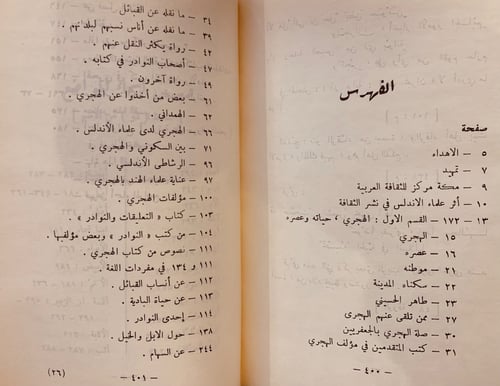 الفهرس
صفحة
٥ — الاهداء
٧ — تمهيد
٩ — مكة مركز للثقافة العربية
١٠ — أثر علماء الاندلس في نشر الثقافة
١٣ — ١٧٢ — القسم الاول : الهجري ، حياته وعصره
١٥ — الهجري
١٦ — عصره
٢١ — موطنه
٢٢ — سكناه المدينة
٢٣ — طاهر الحسيني
٢٧ — ممن تلقى عنهم الهجري
٣٠ — صلة الهجري بالجعفريين
٣١ — كتب المتقدمين في مؤلف الهجري
— ٤٠٠ —
٣٤ — ما نقله عن القبائل
٣٩ — ما نقله عن أناس نسبهم لبلداتهم .
٤٢ — رواة يكثر النقل عنهم .
٤٧ — أصحاب النوادر في كتابه .
٤٩ — رواة آخرون .
٦١ — بعض من أخذوا عن الهجري .
٦٢ — الهمداني .
٦٦ — الهجري لدى علماء الأندلس .
٧١ — بين السكوني والهجري .
٩٦ — الرشاطي الأندلسي .
٩٧ — عناية علماء الهند بالهجري .
١٠٠ — مؤلفات الهجري .
١٠٣ — كتاب « التعليقات والنوادر » .
١٠٤ — من كتب « النوادر » وبعض مؤلفيها .
١١١ — نصوص من كتاب الهجري .
١١١ و ١٣٤ في مفردات اللغة .
١١٢ — عن أنساب القبائل .
١١٣ — عن حياة البادية .
١١٤ — إحدى النوادر .
١٣٨ — حول الابل والخيل .
٢٤٤ — عن السهام .
— ٤٠١ —
(٢٦)